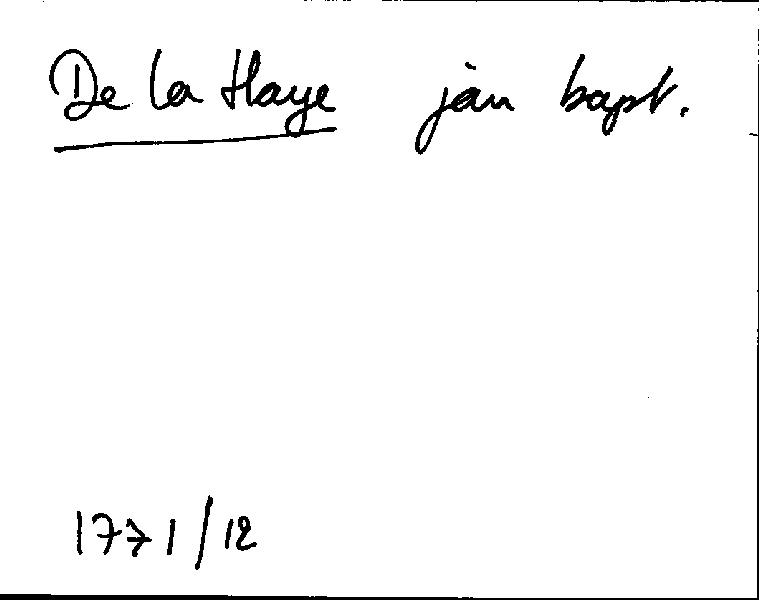 De la Haye jan bapt.
1771/12